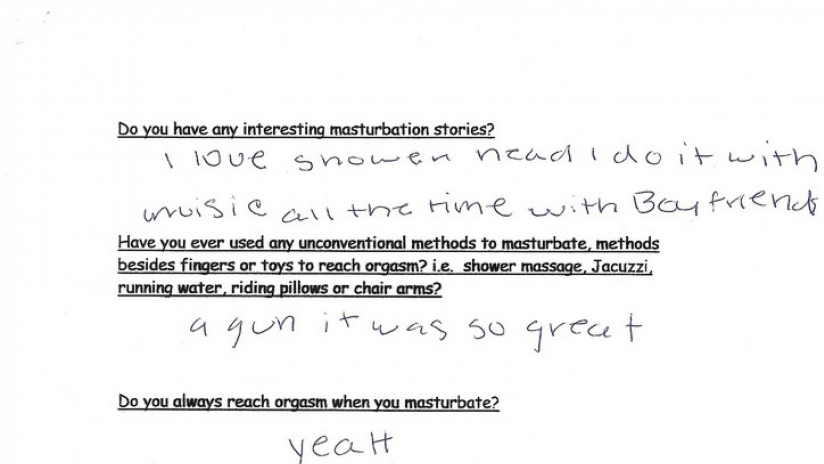 Do you have any interesting masturbation stories?
I love shower head I do it with
music all the time with Boyfriend
Have you ever used any unconventional methods to masturbate, methods
besides fingers or toys to reach orgasm? i.e. shower massage, Jacuzzi,
running water, riding pillows or chair arms?
a gun it was so great
Do you always reach orgasm when you masturbate?
yeaH